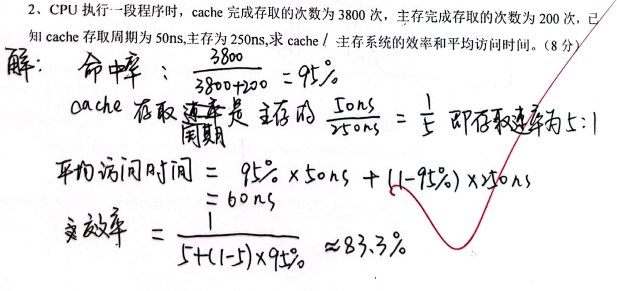 2、CPU 执行一段程序时，cache 完成存取的次数为 3800 次，主存完成存取的次数为 200 次，已
知 cache 存取周期为 50ns,主存为 250ns,求 cache / 主存系统的效率和平均访问时间。（8 分）
解： 命中率： 3800/(3800+200) = 95%
cache 存取周期是主存的 50ns/250ns = 1/5 即存取速率为 5:1
平均访问时间 = 95% × 50ns + (1-95%) × 250ns
= 60ns
效率 = 1/(5+(1-5)×95%) ≈ 83.3%